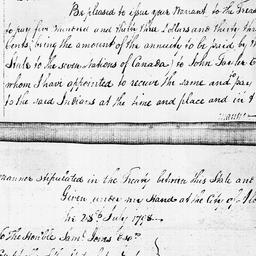 Be pleased to issue your Warrant to the Trea
to pay five hundred and thirty three dollars and thirty thr
Cents, being the amount of the annuity to be paid by t
State to the seven nations of Canada) to John
whom I have appointed to receive the same and pay
to the said Indians at the time and place and in t
manner
manner stipulated in the Treaty between this State and
Given under my Hand at the City of
the 28th July 1798
To The Honble Saml Jones Esqr